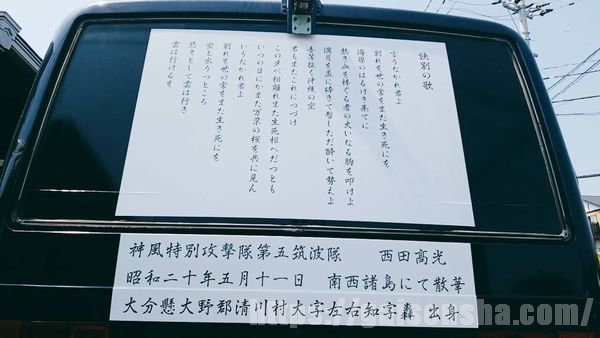 訣別の歌
言うなかれ君よ
別れを世の常をまた生き死にを
海原のはるけき果てに
熱き血を捧ぐる者の大いなる胸を叩けよ
満月を盃に砕きて暫しただ酔いて勢えよ
吾等征く沖縄の空
君もまたこれにつづけ
この夕べ相離れまた生死相へだつとも
いつの日にかまた万葉の桜を共に見ん
いうなかれ君よ
別れを世の常をまた生き死にを
空と水うつところ
悠々として雲は行き
雲は行けるを
神風特別攻撃隊第五筑波隊 西田高光
昭和二十年五月十一日 南西諸島にて散華
大分懸大野郡清川村大字左右知字轟 出身
https://gaisensha.com/